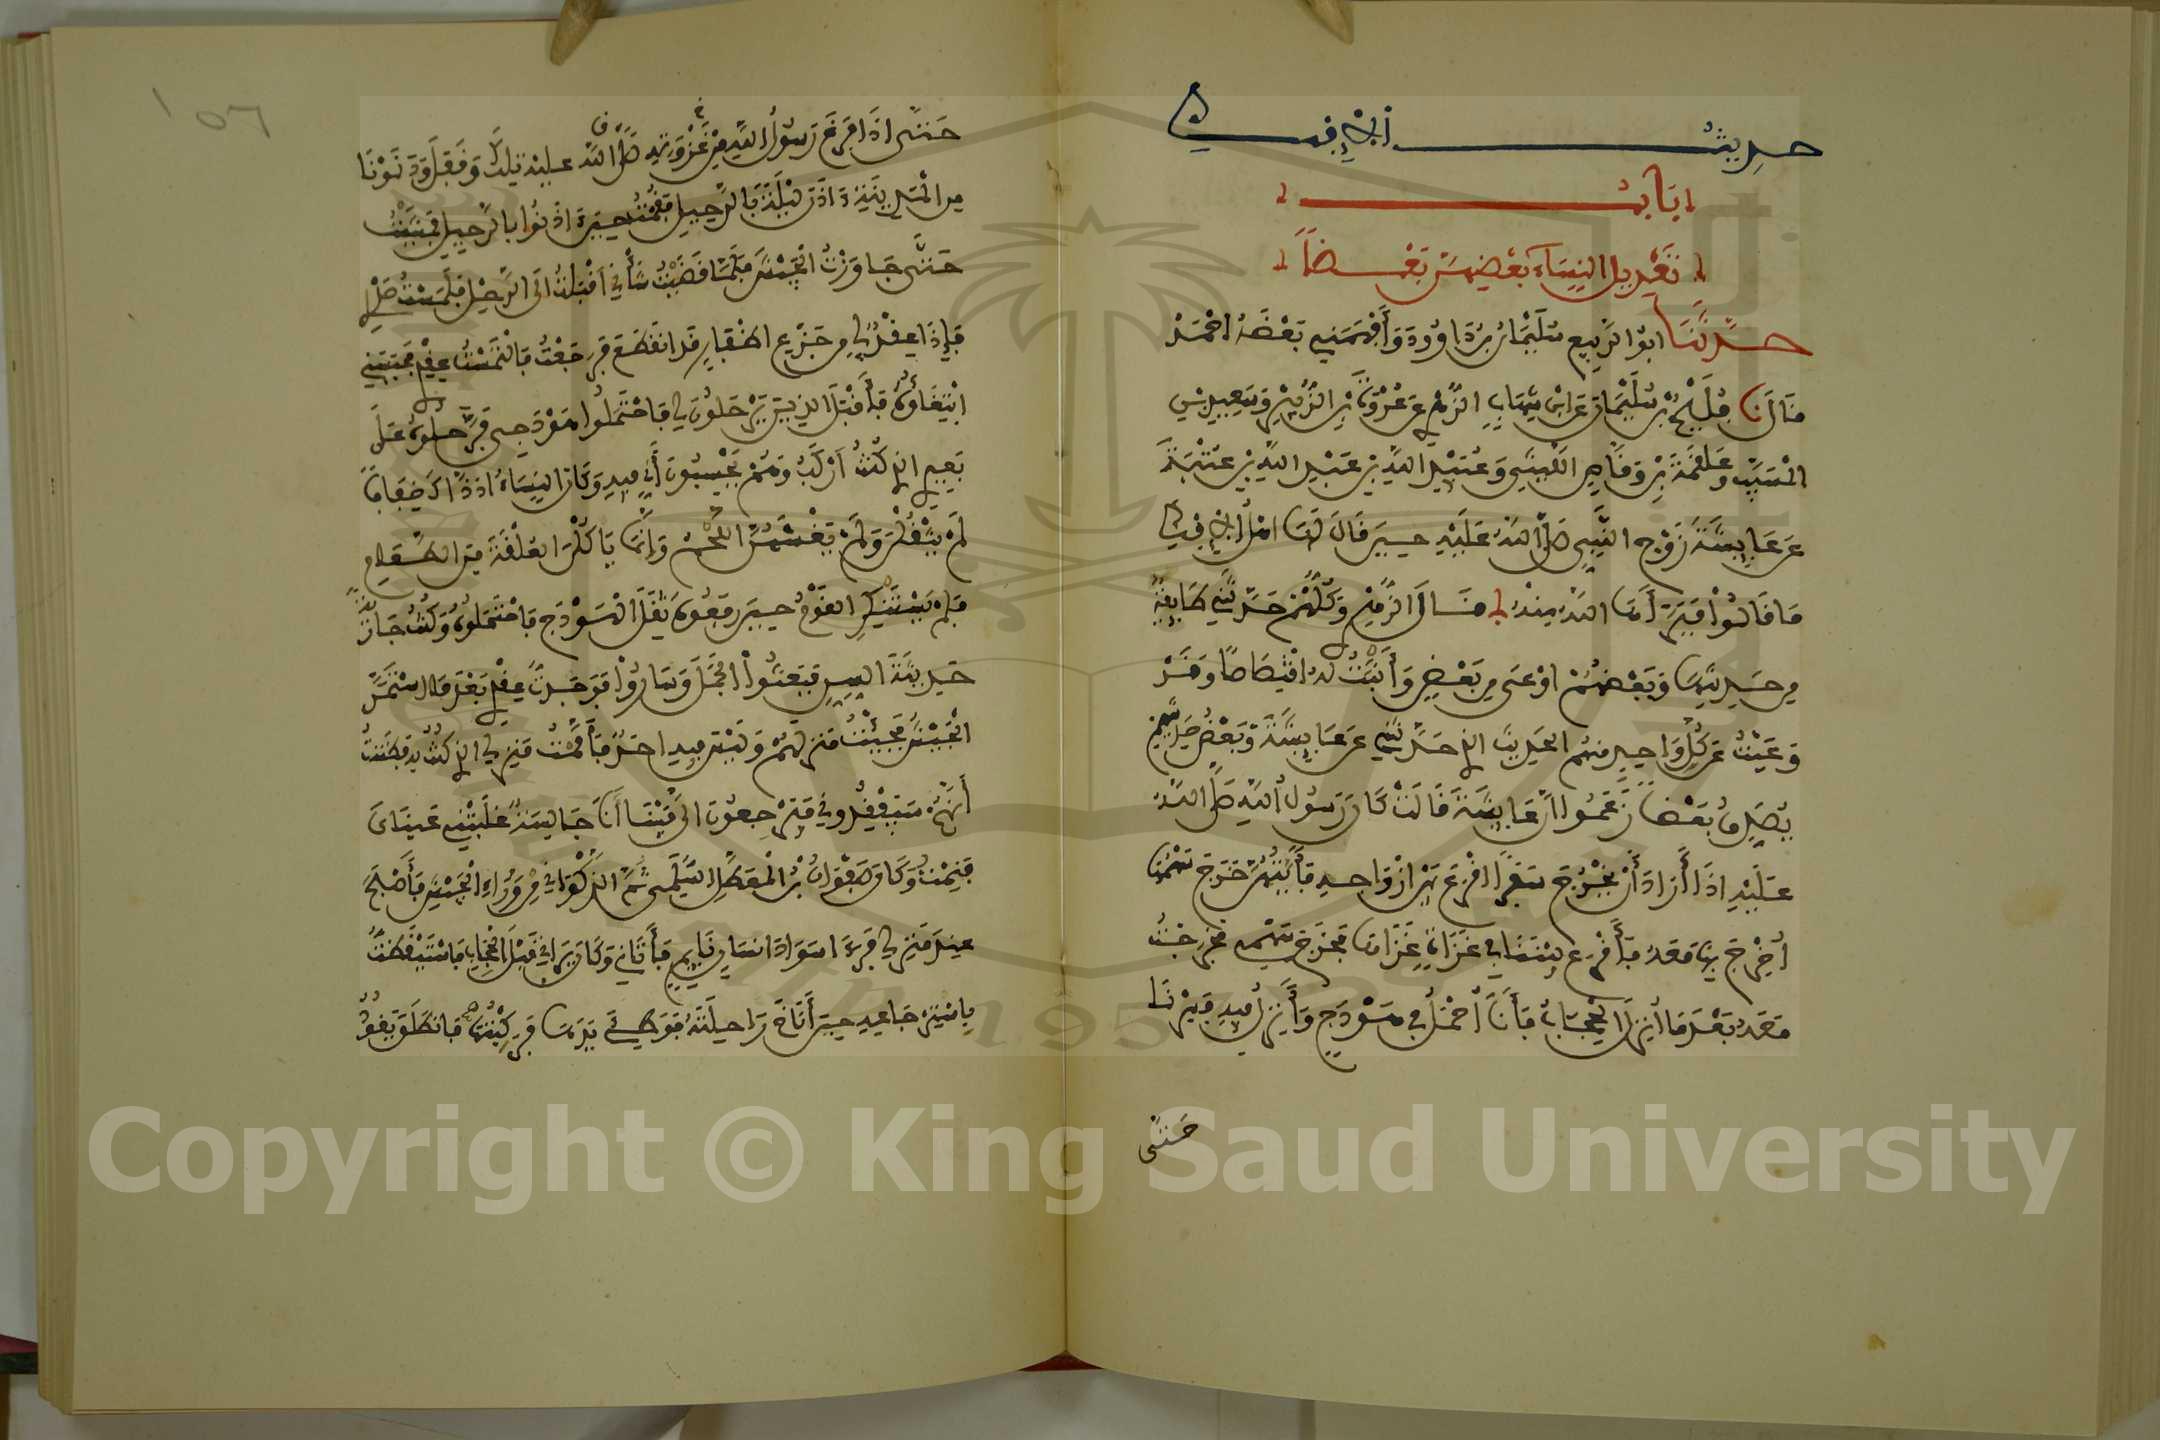 حديث الإفك
باب
تعديل النساء بعضهن بعضاً
حدثنا ابو الربيع سليمان بن داوود وأفهمني بعضه احمد
قال نا فليح بن سليمان عن ابن شهاب الزهري عن عروة بن الزبير وسعيد بن
المسيب وعلقمة بن وقاص الليثي وعبيد الله بن عبد الله بن عتبة
عن عايشة زوج النبي صلى الله عليه حين قال لها اهل الإفك
ما قالوا فبرأها الله منه قال الزهري وكلهم حدثني طايفة
من حديثها وبعضهم اوعى من بعض وأثبت له اقتصاصا وقد
وعيت عن كل واحد منهم الحديث الذي حدثني عن عايشة وبعض حديثهم
يصدق بعضا زعموا ان عايشة قالت كان رسول الله صلى الله
عليه اذا أراد أن يخرج سفرا اقرع بين ازواجه فأيتهن خرج سهمها
اخرج بها معه فأقرع بيننا في غزاة غزاها فخرج سهمي فخرجت
معه بعد ما أنزل الحجاب فأنا أحمل في هودج وأنزل فيه فسرنا
حتى
١٥٦
حتى اذا فرغ رسول الله من غزوته صلى الله عليه تلك وقفل ودنونا
من المدينة اذن ليلة بالرحيل فقمت حين اذنوا بالرحيل فمشيت
حتى جاوزت الجيش فلما قضيت شأني اقبلت الى الرحل فلمست صدري
فإذا عقد لي من جزع اظفار قد انقطع فرجعت فالتمست عقدي فحبسني
ابتغاؤه فأقبل الذين يرحلون لي فاحتملوا هودجي فرحلوه على
بعيري الذي كنت اركب وهم يحسبون أني فيه وكان النساء اذ ذاك خفافا
لم يثقلن ولم يغشهن اللحم وإنما ياكلن العلقة من الطعام
فلم يستنكر القوم حين رفعوه ثقل الهودج فاحتملوه وكنت جارية
حديثة السن فبعثوا الجمل وساروا فوجدت عقدي بعد ما استمر
الجيش فجيت منزلهم وليس فيه احد فأممت منزلي الذي كنت به فظننت
أنهم سيفقدوني فيرجعون الي فبينا أنا جالسة غلبتني عيناي
فنمت وكان صفوان بن المعطل السلمي ثم الذكواني من وراء الجيش فأصبح
عند منزلي فرءا سواد انسان نايم فأتاني وكان يراني قبل الحجاب فاستيقظت
باسترجاعه حين أناخ راحلته فوطئ يدها فركبتها فانطلق يقود